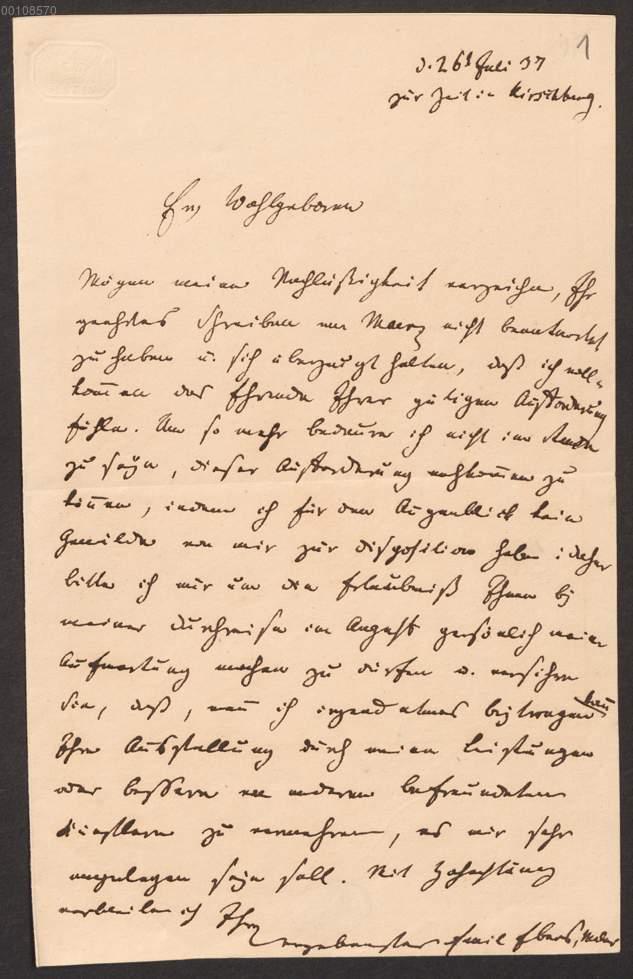 00108570
1
d. 26t Juli 37
zur Zeit in Hirschberg.
Ew Wohlgeboren
Mögen meine Nachläßigkeit verzeihn, Ihr
geehrtes Schreiben vom Maerz nicht beantwortet
zu haben u. sich überzeugt halten, daß ich voll-
kom̅en das Ehrende Ihrer gütigen Aufforderung
fühle. Um so mehr bedaure ich nicht im Stande
zu seyn, dieser Aufforderung nachkom̅en zu
kön̅en, indem ich für den Augenblick kein
Gemälde von mir zur disposition habe: daher
bitte ich mir um die Erlaubniß Ihnen bey
meiner Durchreise im August persönlich meine
Aufwartung machen zu dürfen u. versichre
Sie, daß, wen̅ ich irgend etwas beytragen kan̅
Ihre Ausstellung durch meine Leistungen
oder bessere von anderen befreundeten
Künstlern zu vermehren, es mir sehr
angelegen seyn soll. Mit Hochachtung
verbleibe ich Ihr
ergebenster Emil Ebers, Maler